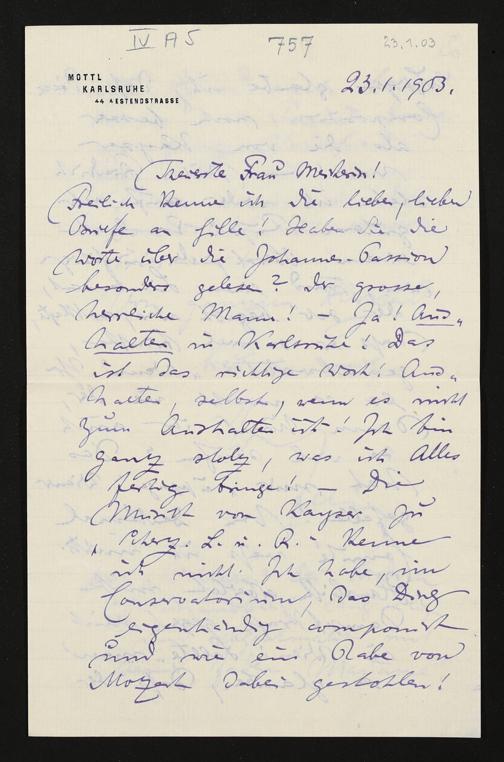 IV A 5
757
23.1.03
MOTTL
KARLSRUHE
44 WESTENDSTRASSE
23.1.1903.
Theuerste Frau Meisterin!
Freilich kenne ich die lieben, lieben
Briefe an Gille! Haben Sie die
Worte über die Johannes-Passion
besonders gelesen? Der grosse,
herrliche Mann! – Ja! Aus„
halten in Karlsruhe! Das
ist das richtige Wort! Aus„
halten, selbst, wenn es nicht
zum Aushalten ist! Ich bin
ganz stolz, was ich Alles
fertig bringe! – Die
Musik von Kayser zu
„Scherz. L. u. R." kenne
ich nicht. Ich habe, im
Conservatorium, das Ding
eigenhändig componirt
und wie ein Rabe von
Mozart dabei gestohlen!